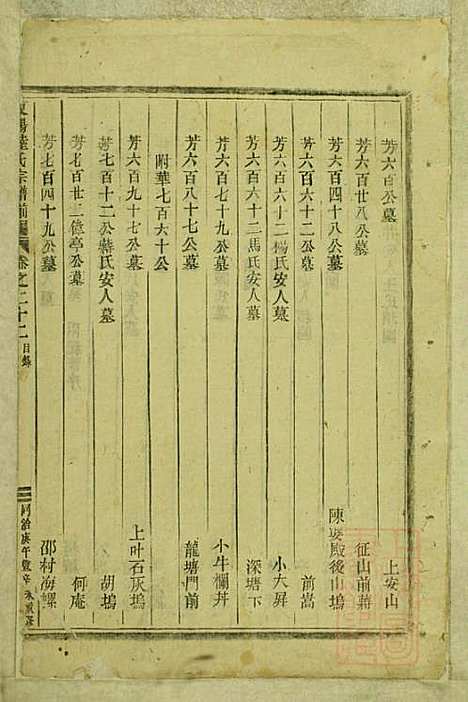 芳六百公墓 上安山
芳六百廿八公墓 征山前蔣
芳六百四十八公墓 陳婆殿後山塢
芳六百六十二公墓 前嵩
芳六百六十二楊氏安人墓 小大昇
芳六百六十二馬氏安人墓 深塘下
芳六百七十九公墓 小牛欄丼
芳六百八十七公墓 龍塘門前
附華七百六十公
芳六百九十七公墓 上叶石灰塢
芳七百十二公韓氏安人墓 胡塢
芳七百廿二億亭公墓 何庵
芳七百四十九公墓 邵村海螺
陽陸氏宗譜前編 卷之二十二 目錄
同治庚午